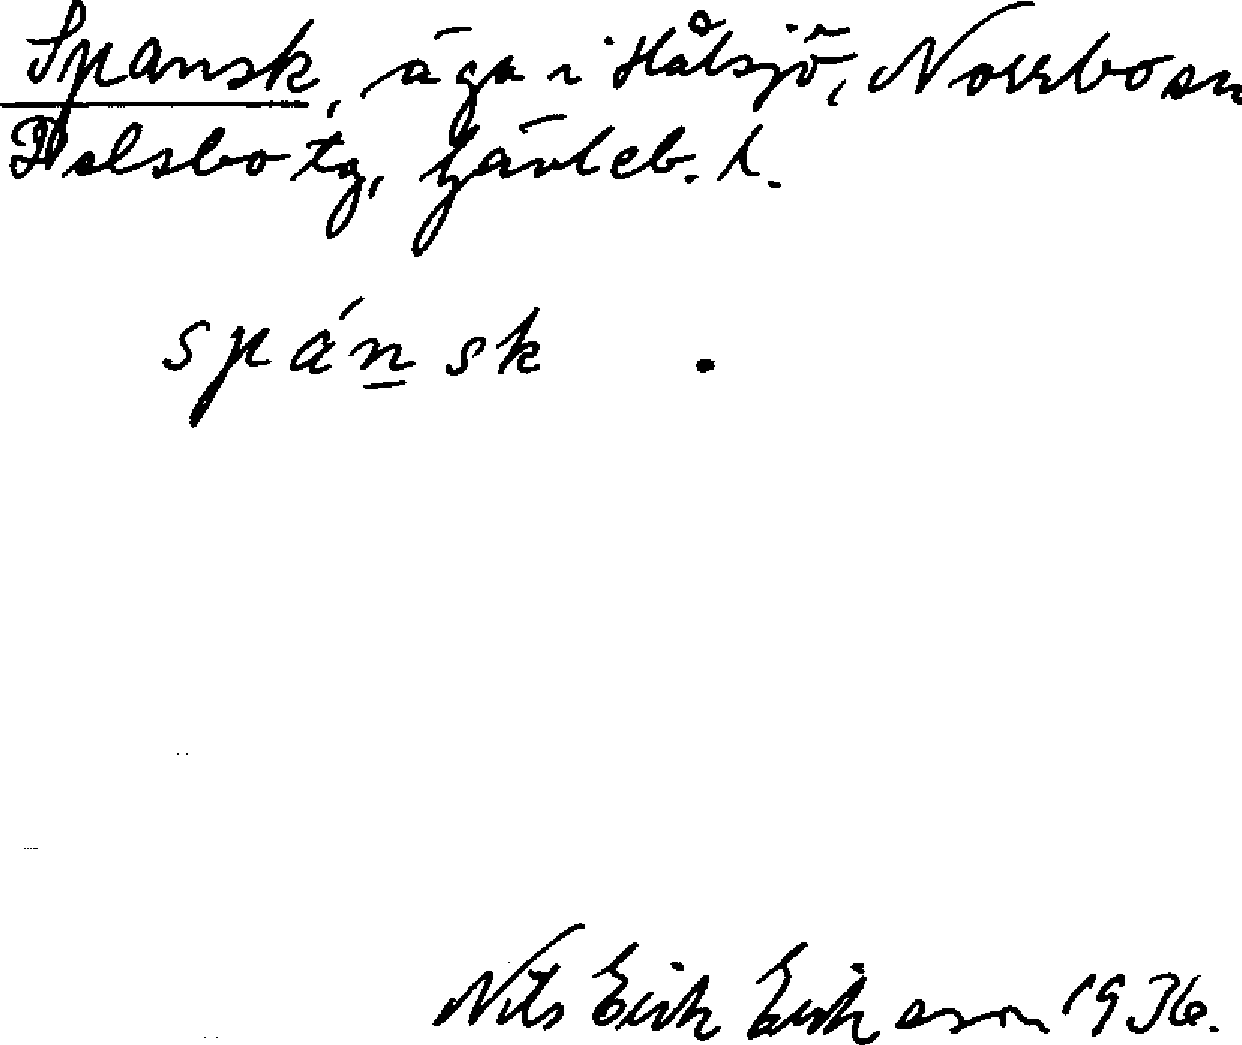 Spansk, äga i Hålsjö, Norrbo sn
Delsbo tg, Gävleb. l.
spánsk .
Nils Erik Eriksson 1936.